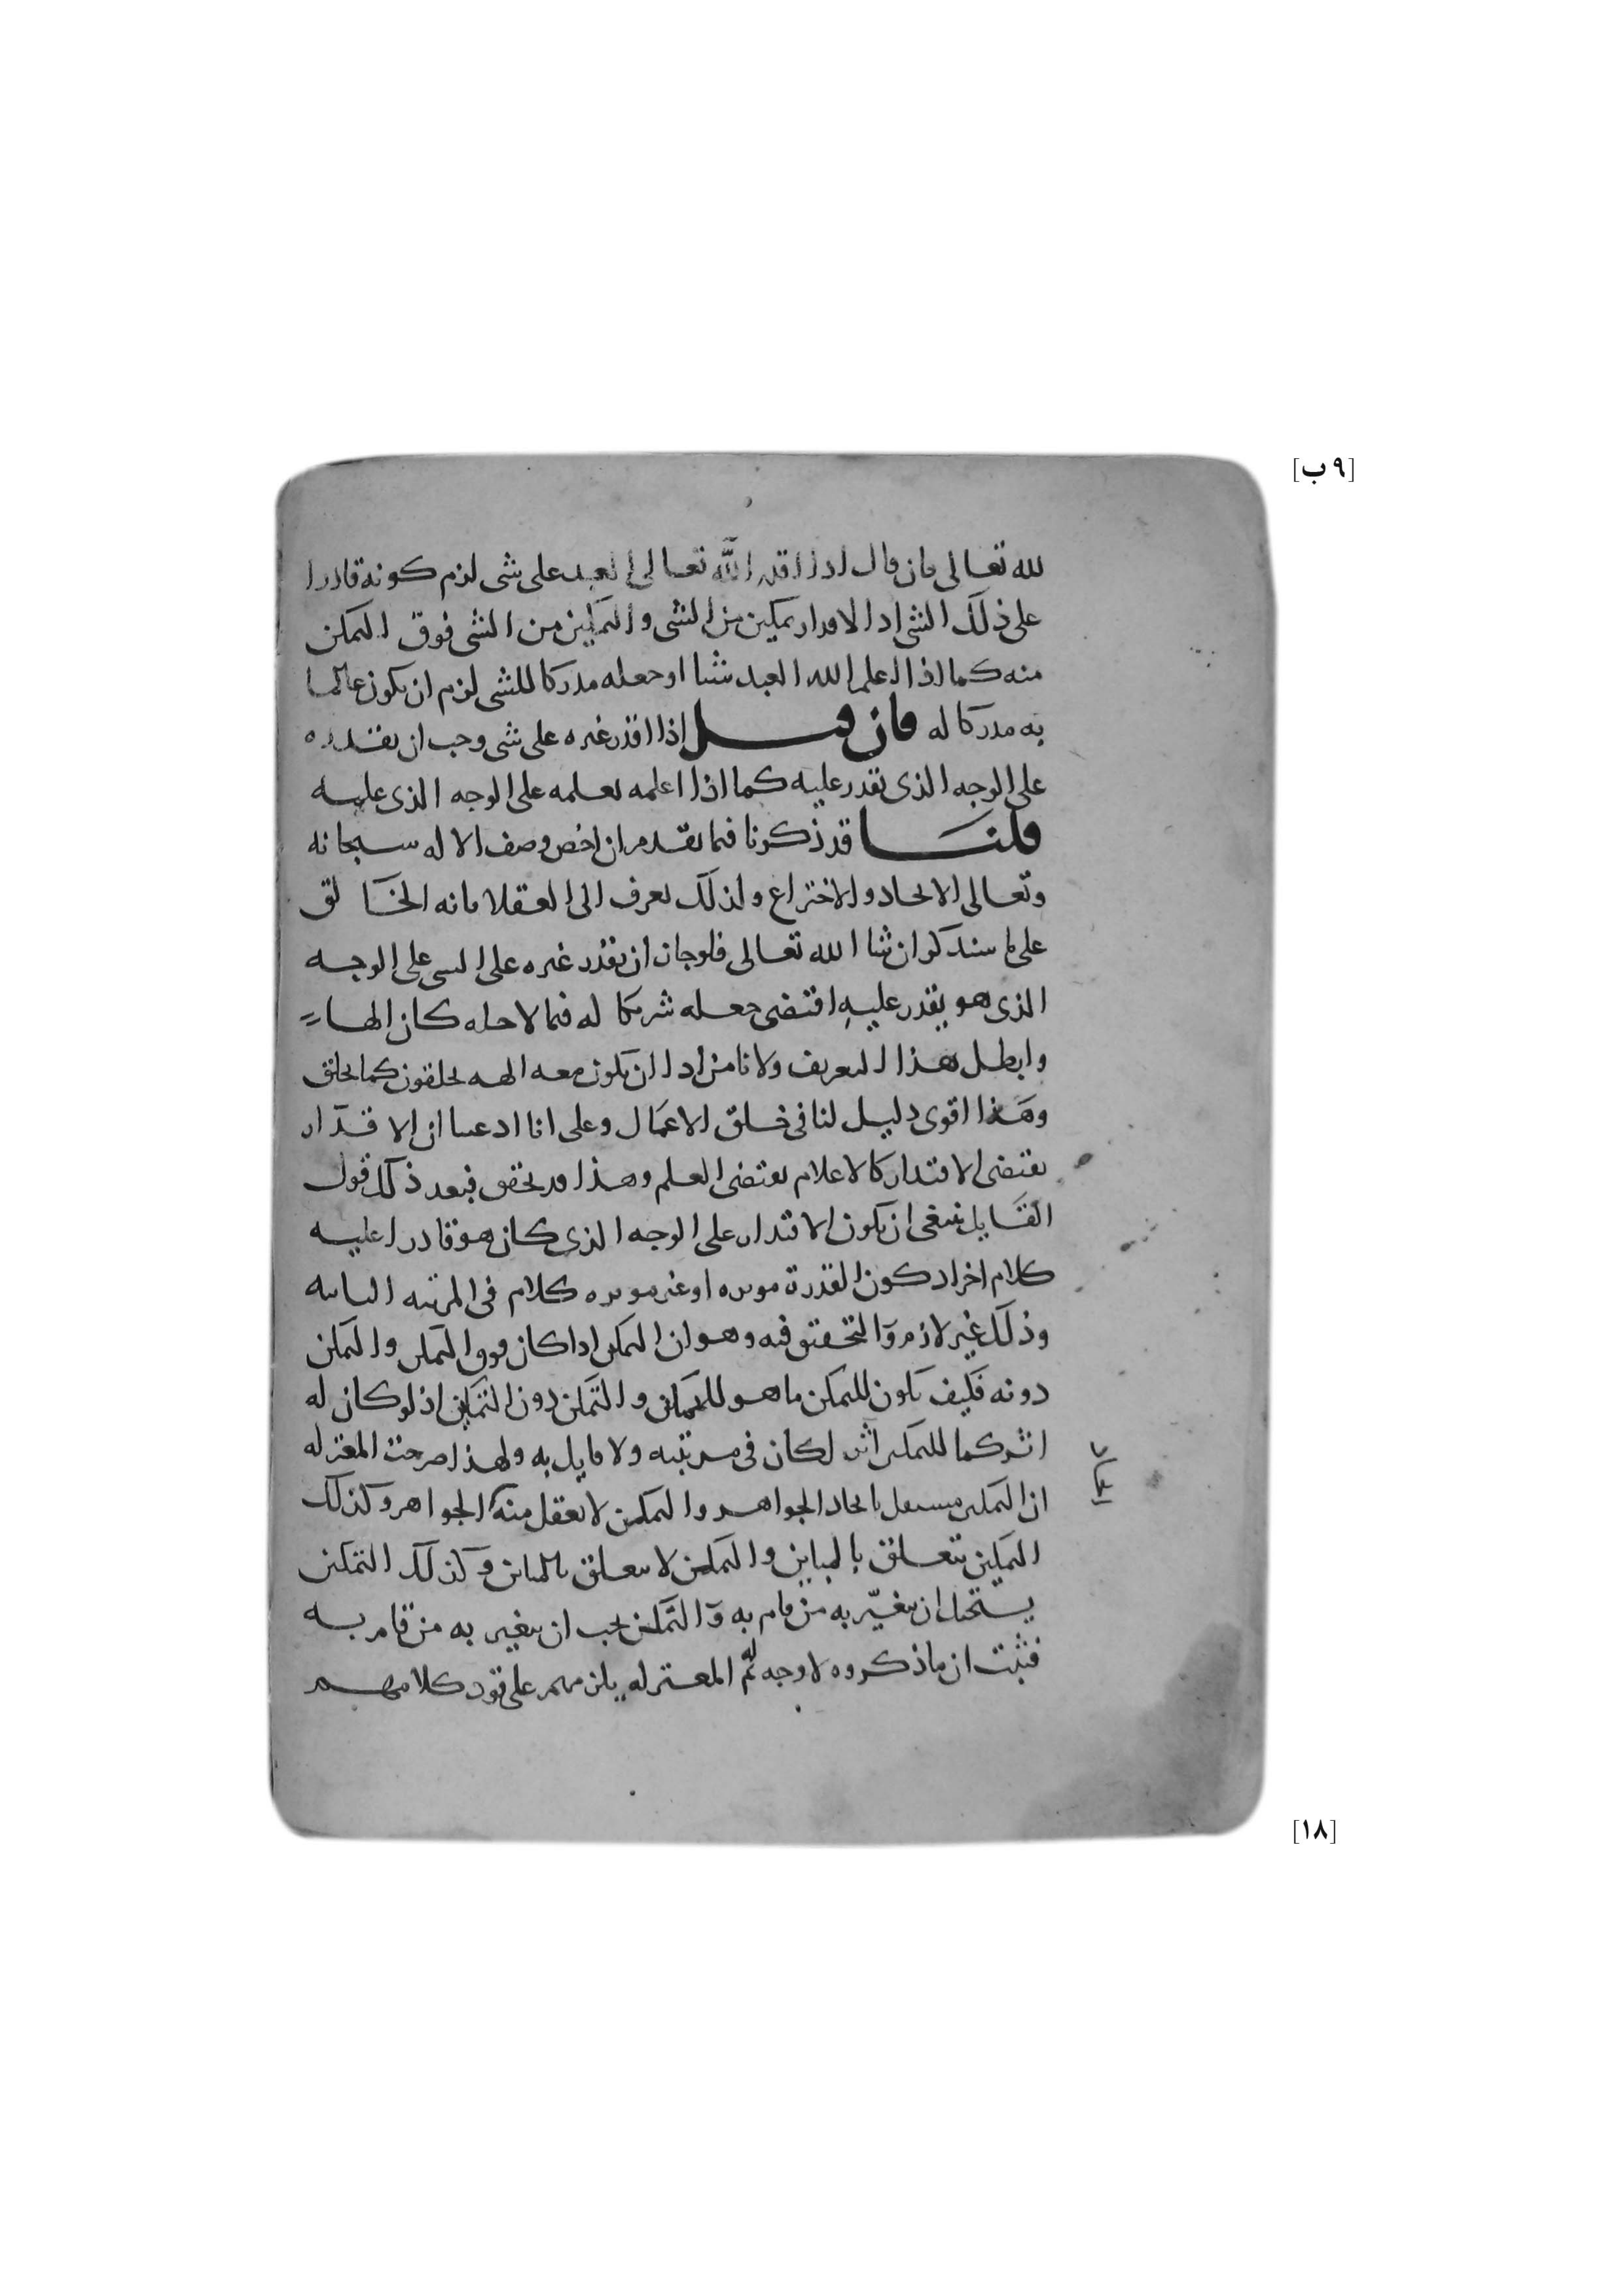 [٩ ب]
لله تعالى فان قال اذا اقدر الله تعالى العبد على شى لزم كونه قادرا
على ذلك الشى اذ الاقدار تمكين من الشى والتمكين من الشى فوق التمكن
منه كما اذا اعلم الله العبد شيا او جعله مدركا للشى لزم ان يكون عالما
به مدركا له فان قيل اذا اقدر غيره على شى وجب ان يقدره
على الوجه الذى يقدر عليه كما اذا اعلمه يعلمه على الوجه الذى عليه
قلنا قد ذكرنا فيما تقدم ان اخص وصف الاله سبحانه
وتعالى الايجاد والاختراع ولذلك تعرف الى العقلا بانه الخالق
على ما سنذكر ان شا الله تعالى فلو جاز ان يقدر غيره على الشى على الوجه
الذى هو يقدر عليه اقتضى جعله شريكا له فيما لاجله كان الها
وابطل هذا التعريف ولانا من اذا ان يكون معه الهه يخلقون كما يخلق
وهذا اقوى دليل لنا فى خلق الاعمال وعلى انا ادعينا ان الاقدار
يقتضى الاقتدار كالاعلام يقتضى العلم وهذا قد تحقق فبعد ذلك قول
القايل ينبغى ان يكون الاقتدار على الوجه الذى كان هو قادرا عليه
كلام اخر اذ كون القدرة موثره او غير موثره كلام فى المرتبه الثانيه
وذلك غير لازم والتحقيق فيه وهو ان التمكين اذا كان فوق التمكن والتمكن
دونه فكيف يكون للتمكن ما هو للتمكين والتمكن دون التمكين اذ لو كان له
اثر كما للتمكين اثر لكان فى مرتبته ولا قايل به ولهذا صرحت المعتزله
ان التمكين يستقل بايجاد الجواهر والتمكن لا يعقل منه الجواهر وكذلك
التمكين يتعلق بالمباين والتمكن لا يتعلق بالمباين وكذلك التمكين
يستحيل ان يتغير به من قام به والتمكن يجب ان يتغير به من قام به
فثبت ان ما ذكروه لا وجه له ثم المعتزله يلزمهم على قود كلامهم
[١٨]